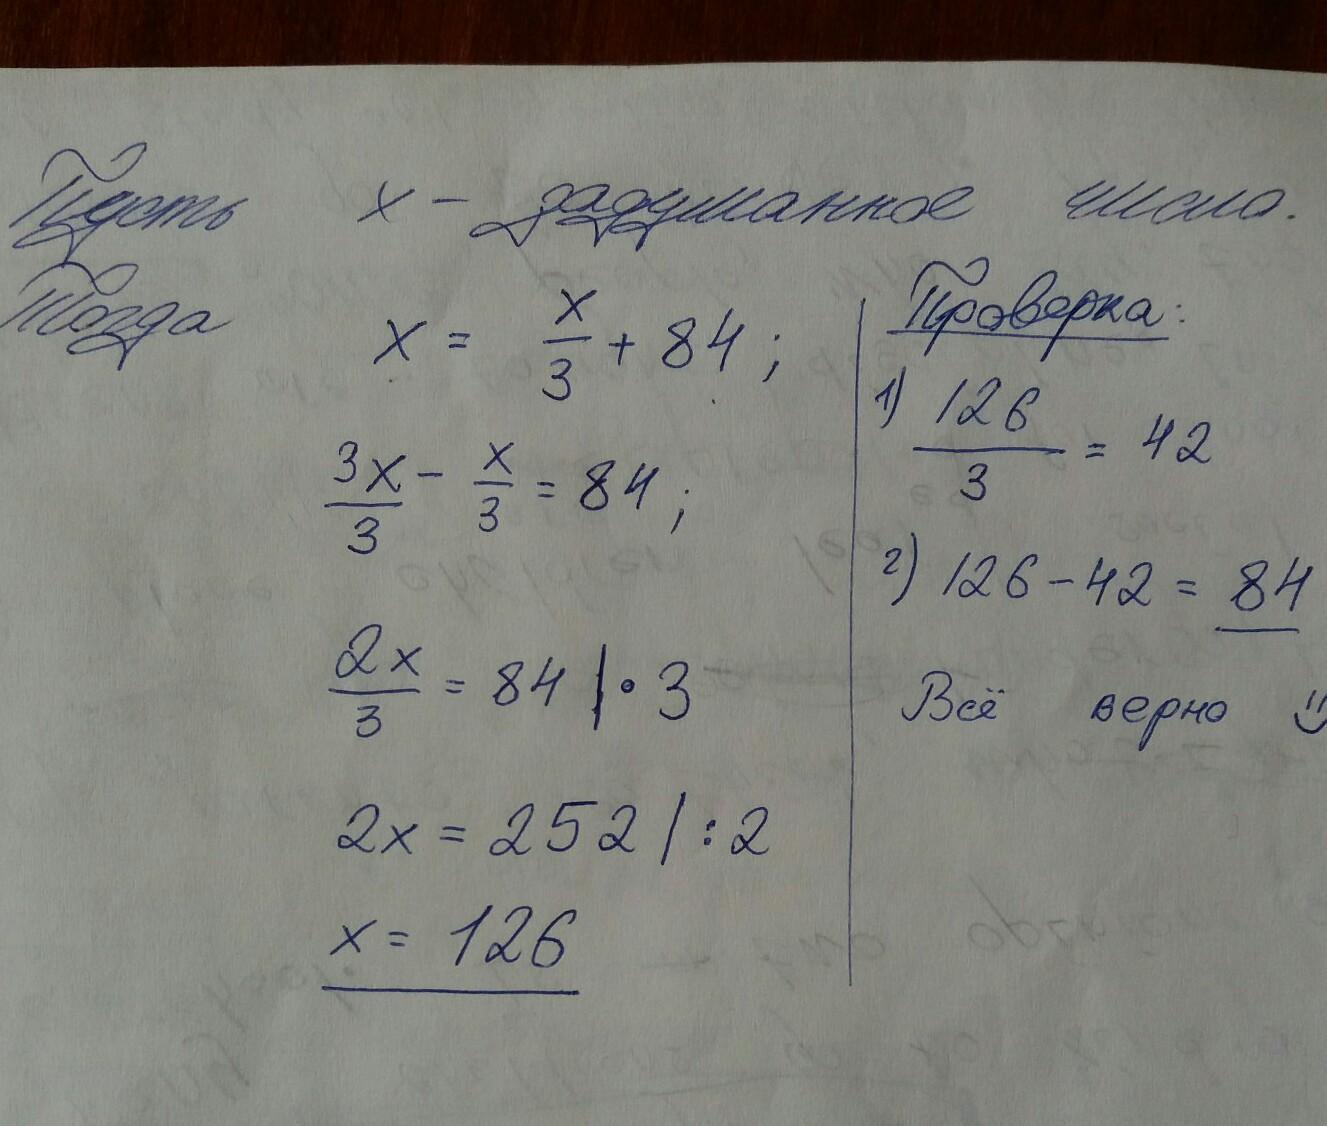 Пусть x – задуманное число.
Тогда
x = x/3 + 84 ;
3x/3 - x/3 = 84 ;
2x/3 = 84 | · 3
2x = 252 | : 2
x = 126
Проверка:
1) 126/3 = 42
2) 126 - 42 = 84
Всё верно